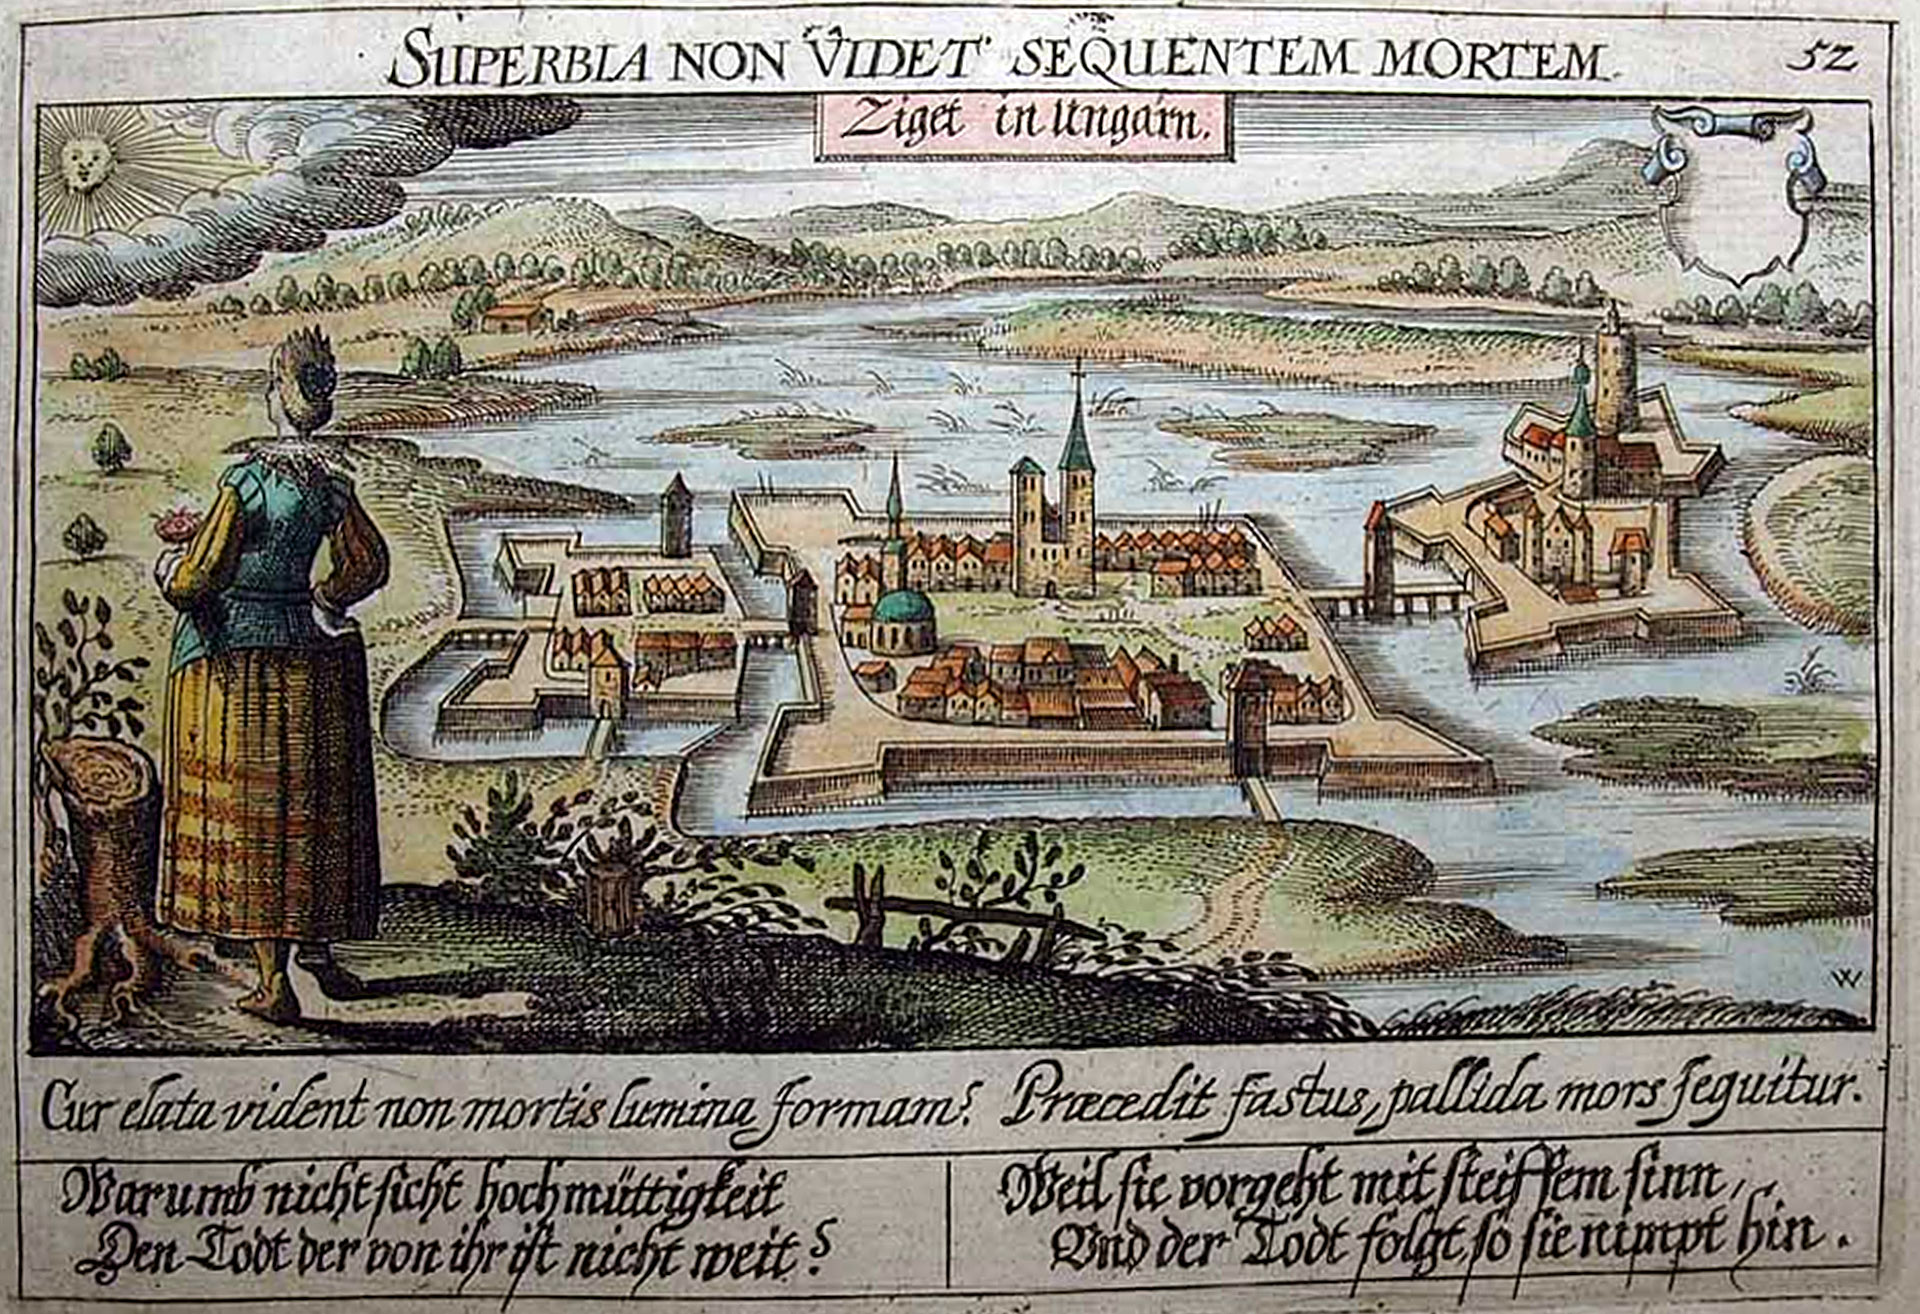 SUPERBIA NON VIDET SEQUENTEM MORTEM.
52
Ziget in Ungarn.
W
Cur elata vident non mortis lumina formam? Præcedit fastus, pallida mors sequitur.
Warumb nicht sicht hochmüttigkeit
Den Todt der von ihr ist nicht weit?
Weil sie vorgeht mit steiffem sinn,
Und der Todt folgt, so sie nimpt hin.